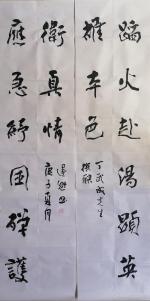 蹈火赴湯顯英
雄本色
丁武成先生
撰联
應急紓困殫護
衛真情
庚子夏月